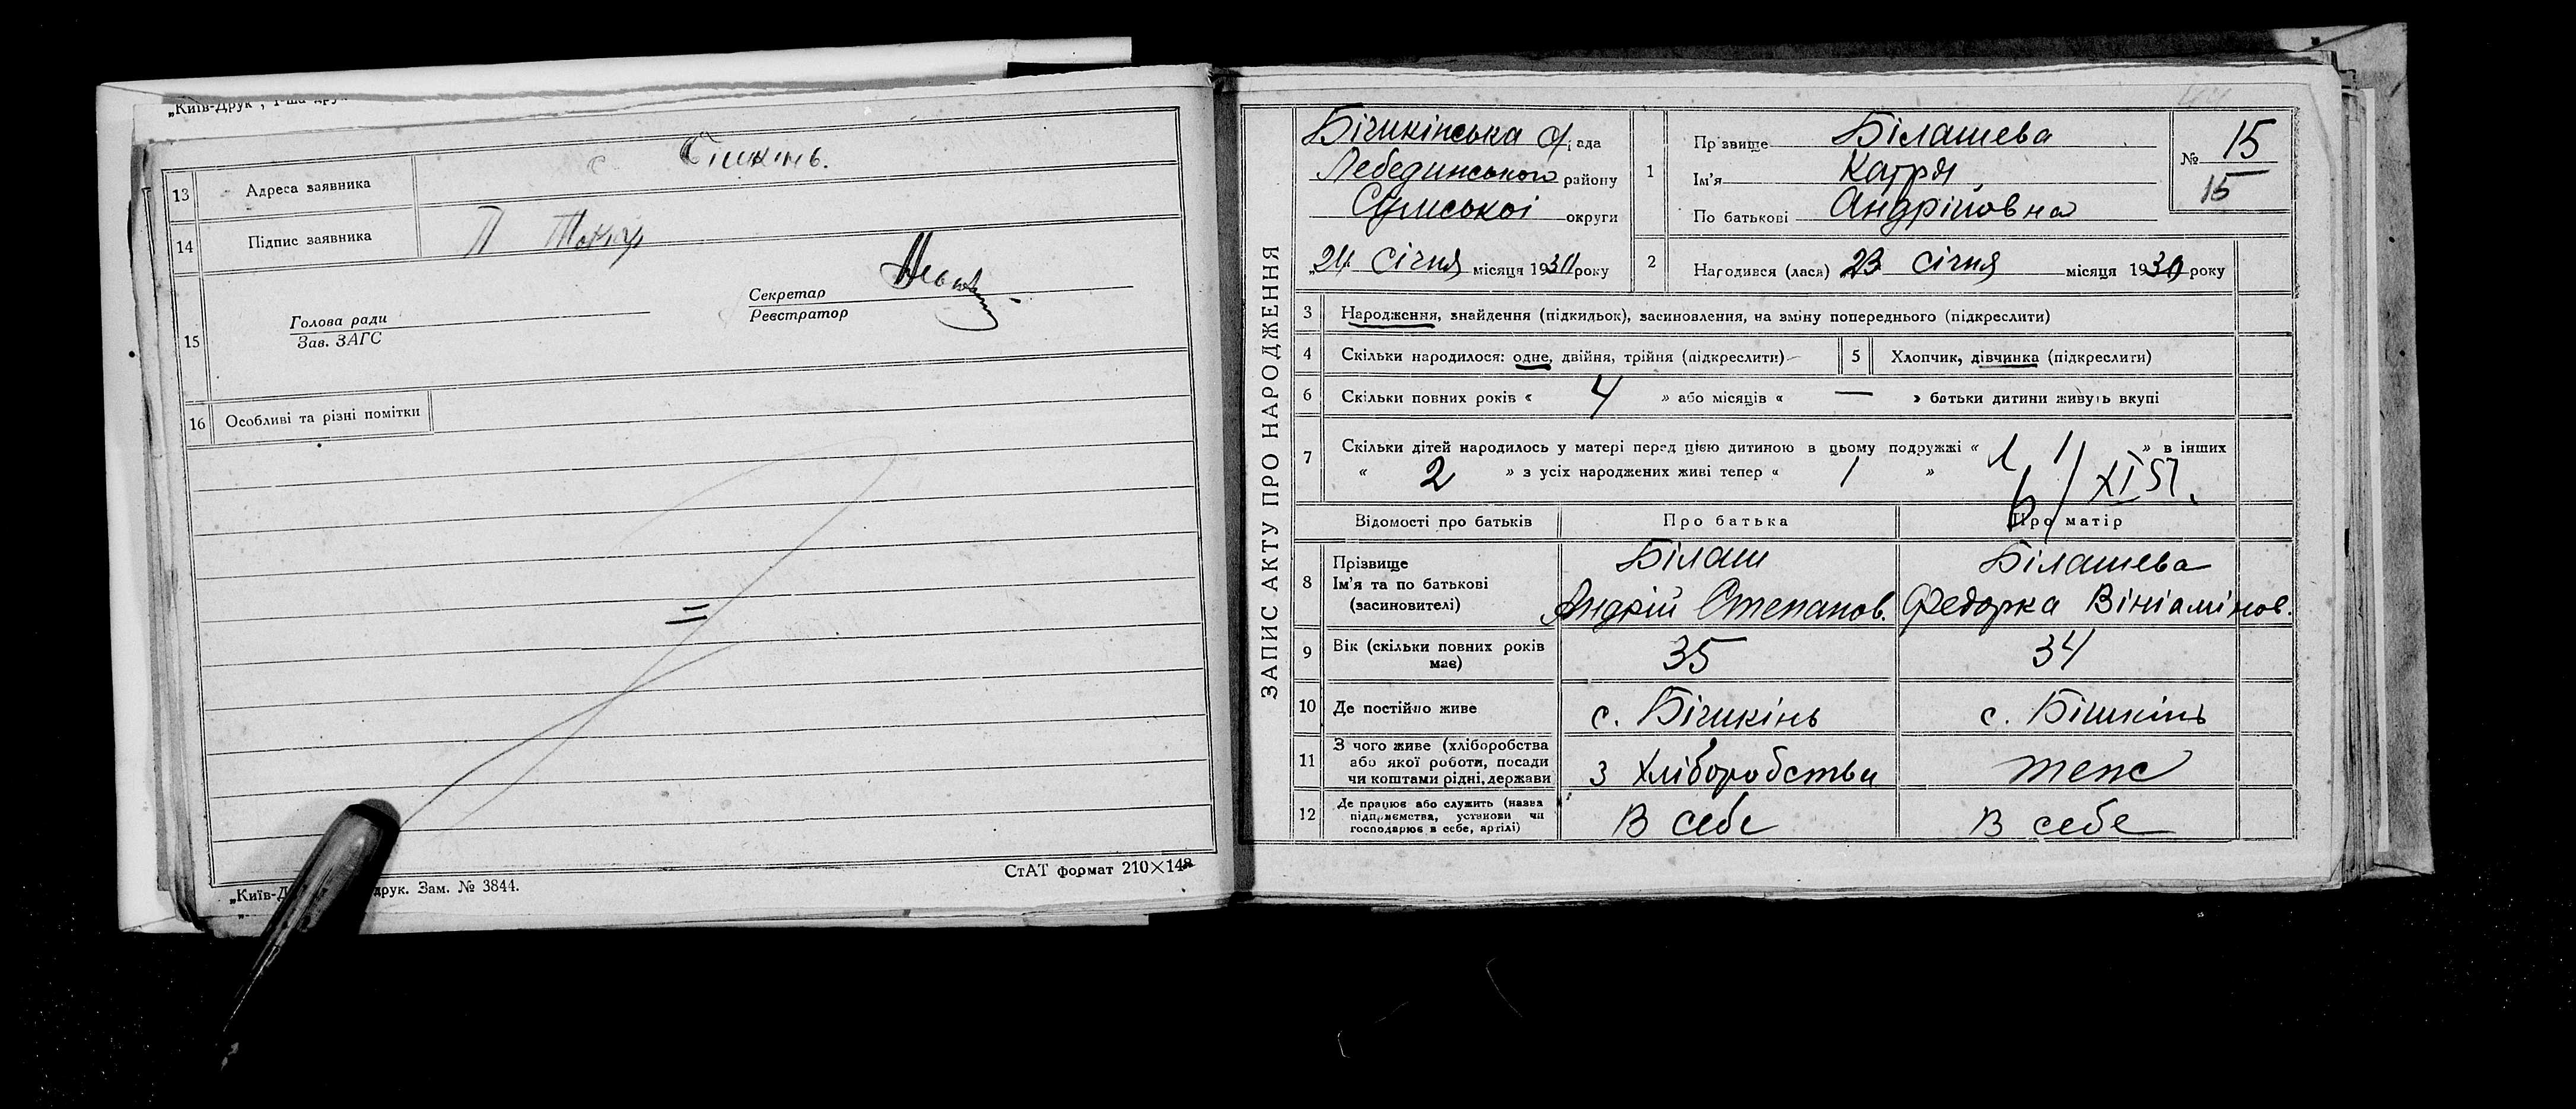 „Київ-Друк“, 1-ша
13 Адреса заявника с Бішкінь.
14 Підпис заявника П
15 Голова ради
Зав. ЗАГС
Секретар
Реєстратор
16 Особливі та різні помітки
СтАТ формат 210×148
„Київ-Д друк. Зам. № 3844.
ЗАПИС АКТУ ПРО НАРОДЖЕННЯ
Бішкінська с/рада
Лебединського району
Сумської округи
„24 Січня місяця 1930 року
1 Прізвище Білашева
Ім’я Катря
По батькові Андріївна
№ 15
15
2 Народився (лася) 23 січня місяця 1930 року
3 Народження, знайдення (підкидьок), засиновлення, на зміну попереднього (підкреслити)
4 Скільки народилося: одне, двійня, трійня (підкреслити)
5 Хлопчик, дівчинка (підкреслити)
6 Скільки повних років « 4 » або місяців « — » батьки дитини живуть вкупі
7 Скільки дітей народилось у матері перед цією дитиною в цьому подружжі « 1 » в інших
« 2 » з усіх народжених живі тепер « 1 »
6/XI 51.
Відомості про батьків Про батька Про матір
8 Прізвище
Ім’я та по батькові
(засиновителі)
Білаш
Андрій Степанов.
Білашева
Федорка Вініамінов.
9 Вік (скільки повних років
має) 35 34
10 Де постійно живе с. Бішкінь с. Бішкінь
11 З чого живе (хліборобства
або якої роботи, посади
чи коштами рідні, держави
з Хліборобства теж
12 Де працює або служить (назва
підприємства, установи чи
господарює в себе, артілі)
В себе В себе